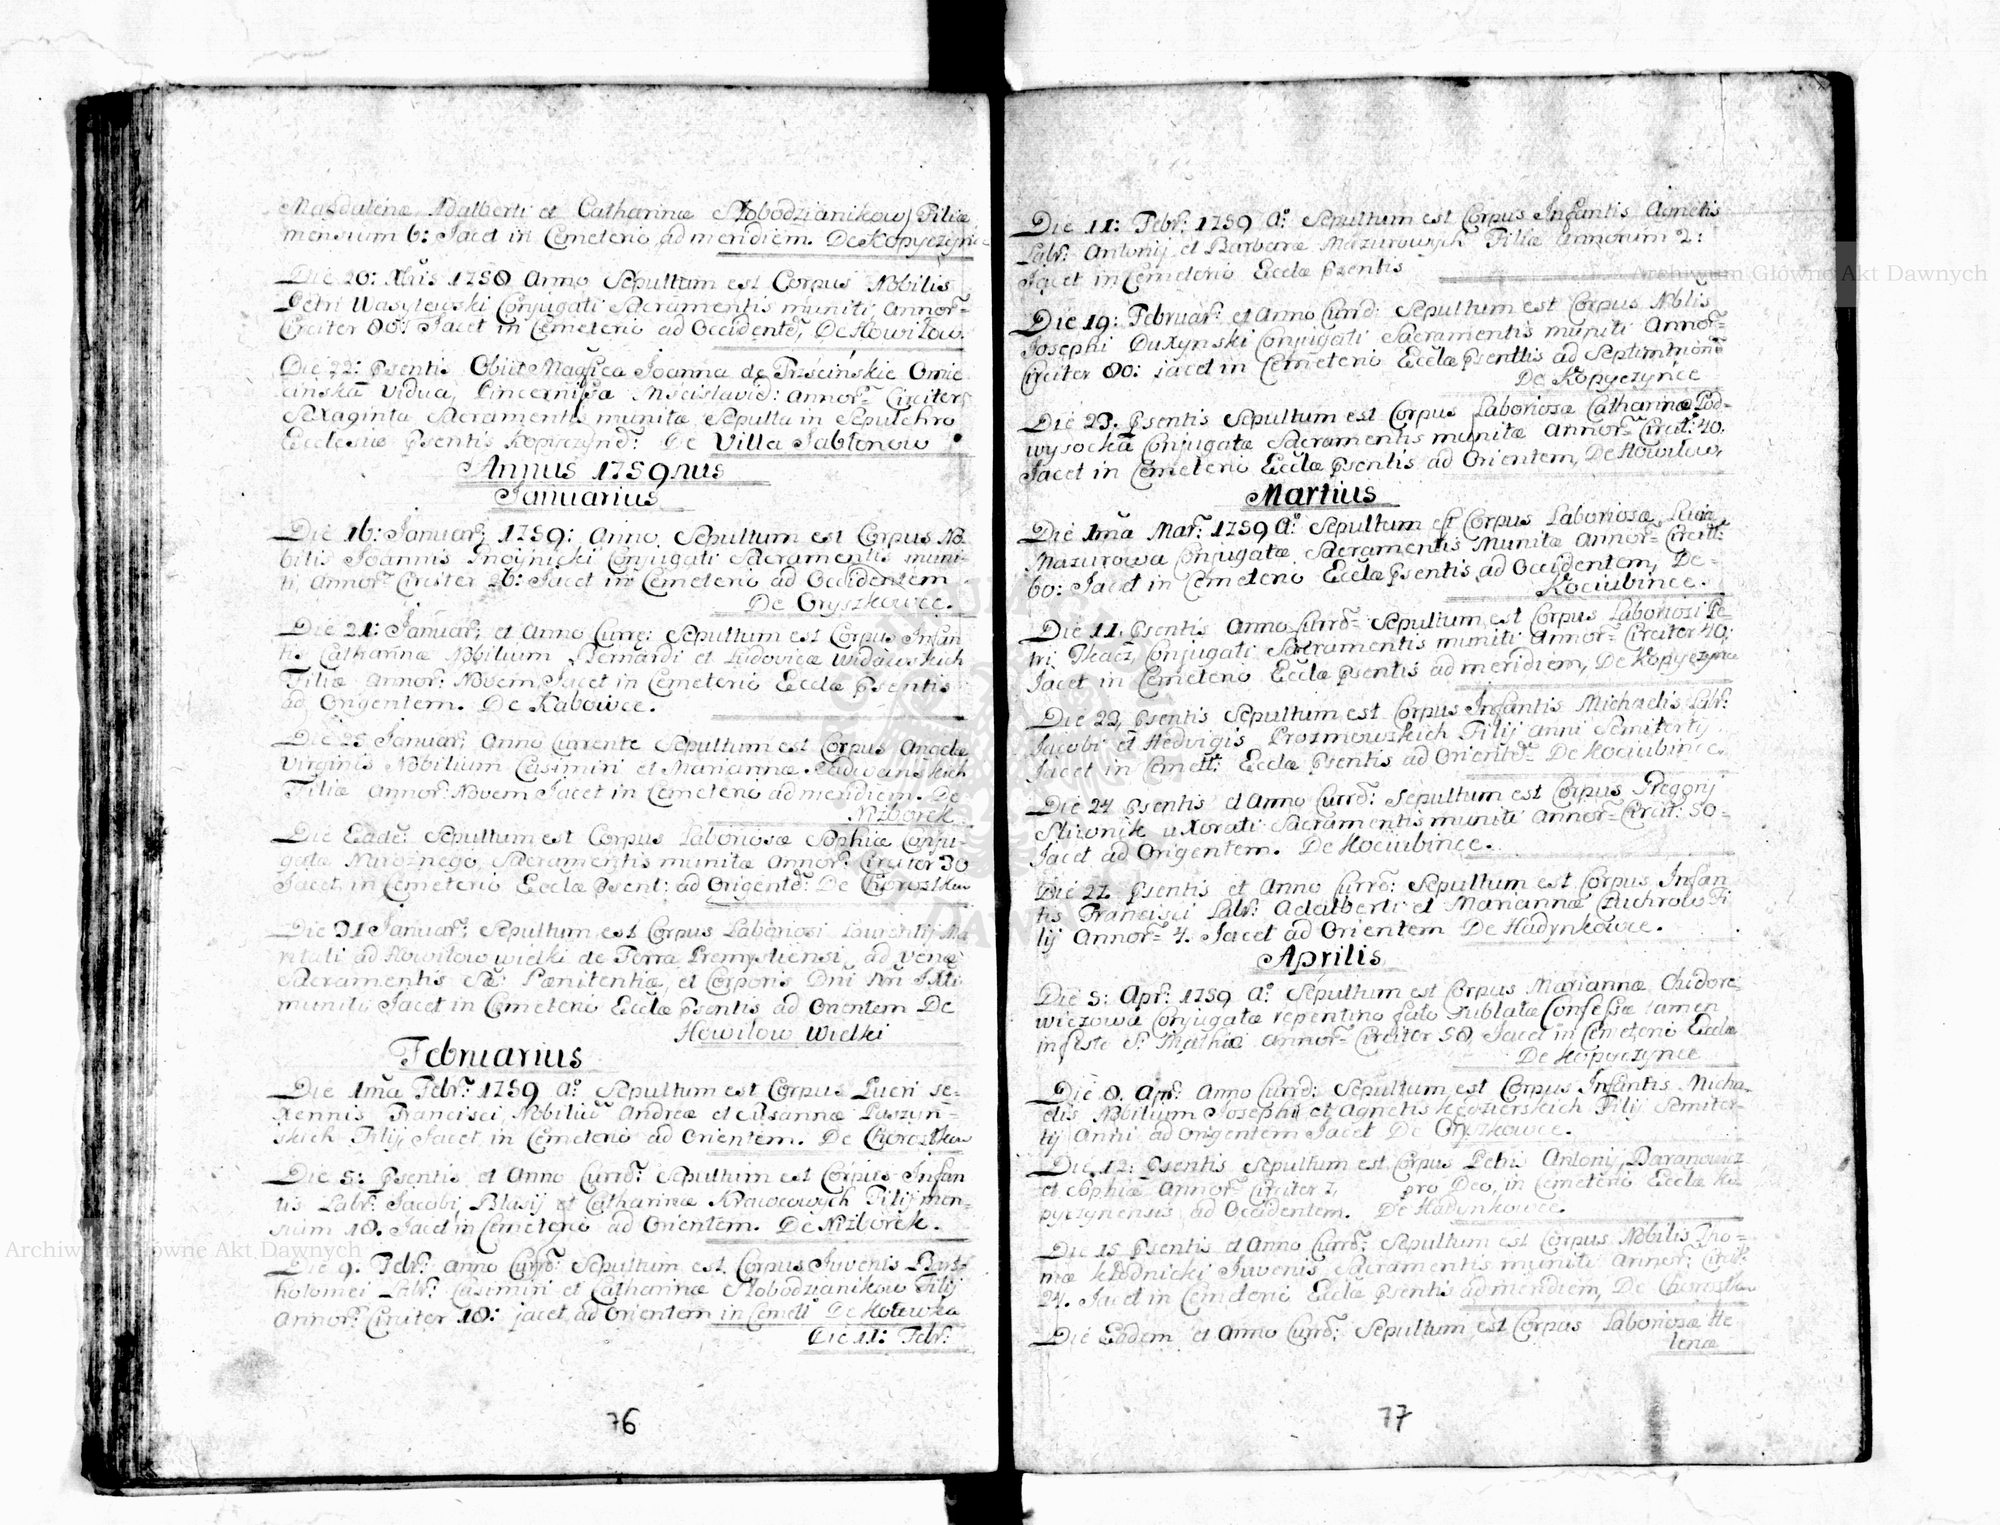 Magdalenæ Adalberti et Catharinæ Słobodzianikow Filiæ
mensium 6: Jacet in Cemeterio ad meridiem. De Kopyczynce
Die 20: Xbris 1758 Anno Sepultum est Corpus Nobilis
Petri Wasylewski Conjugati Sacramentis muniti, Annor:
Circiter 80: Jacet in Cemeterio ad Occidentē, De Howiłow.
Die 22: Psentis Obiit Magfica Joanna de Trzcińskie Omie
cińska Vidua, Pincernissa Mścislavię: annor: Circiter
Sexaginta Sacramentis munita Sepulta in Sepulchro
Ecclesiæ Psentis Kopyczynē: De Villa Jabłonow
Annus 1759nus
Januarius
Die 16: Januar: 1759: Anno Sepultum est Corpus No
bilis Joannis Inoynicki Conjugati Sacramentis muni-
ti, Annor: Circiter 26: Jacet in Cemeterio ad Occidentem
De Oryszkowce.
Die 21: Januar: et Anno Curre: Sepultum est Corpus Infan
tis Catharinæ Nobilium Bernardi et Ludovicæ Widawskich
Filiæ Annor: Novem Jacet in Cemeterio Ecclæ Psentis
ad Origentem. De Rabowce.
Die 25 Januar: Anno Currente Sepultum est Corpus Angelæ
Virginis Nobilium Casimiri et Mariannæ Radwańskich
Filiæ Annor: Novem Jacet in Cemeterio ad meridiem. De
Niżborek
Die Eadē: Sepultum est Corpus Laboriosæ Sophiæ Conju-
gatæ Mroźnego, Sacramentis munitæ Annor: Circiter 30
Jacet in Cemeterio Ecclæ Psent: ad Origentē: De Chorostkow
Die 31 Januar: Sepultum est Corpus Laboriosi Laurentij Ma
ritati ad Howiłow wielki de Terra Premysliensi, ad venæ
Sacramentis Sæ: Pœnitentiæ, et Corporis Dni Nri JXti
muniti, Jacet in Cemeterio Ecclæ Psentis ad Orientem De
Howiłow Wielki
Februarius
Die 1mā Febr: 1759 A° Sepultum est Corpus Pueri se-
xennis Francisci, Nobiliū Andreæ et Susannæ Paszyń-
skich Filij Jacet in Cemeterio ad Orientem. De Chorostkow
Die 5: Psentis et Anno Currē: Sepultum est Corpus Infan
tis Labr: Jacobi, Blasij et Catharinæ Krawcowych Filij men-
sium 18. Jacet in Cemeterio ad Orientem. De Niżborek.
Die 9. Febr: Anno Currē: Sepultum est Corpus Juvenis Bart-
holomei Labr: Casimiri et Catharinæ Słobodzianikow Filij
Annor: Circiter 18: jacet ad Orientem in Cemett: De Kotewka
Die 11: Febr:
76
Die 11: Febr: 1759 A° Sepultum est Corpus Infantis Agnetis
Labr: Antonij et Barbaræ Mazurowych Filiæ Annorum 2:
Jacet in Cemeterio Ecclæ Psentis
Die 19: Februar: et Anno Currē: Sepultum est Corpus Noblis
Josephi Duxynski Conjugati Sacramentis muniti Annor:
Circiter 80: jacet in Cemeterio Ecclæ Psentis ad Septemtrionē
De Kopyczyńce
Die 23. Psentis Sepultum est Corpus Laboriosæ Catharinæ Pod-
wysocka Conjugatæ Sacramentis munitæ Annor: Circit: 40.
Jacet in Cemeterio Ecclæ Psentis ad Orientem, De Howiłow.
Martius
Die 1mā Mar: 1759 A° Sepultum est Corpus Laboriosæ
Mazurowa Conjugatæ Sacramentis Munitæ Annor: Circitt:
60: Jacet in Cemeterio Ecclæ Psentis ad Occidentem, De-
Kociubince.
Die 11. Psentis Anno Currē: Sepultum est Corpus Laboriosi Pe-
tri Tkacz, Conjugati Sacramentis muniti Annor: Circiter 40:
Jacet in Cemeterio Ecclæ Psentis ad meridiem, De Kopyczynce
Die 22, Psentis Sepultum est Corpus Infantis Michaelis Labr:
Jacobi et Hedvigis Prozmowskich Filij anni Semitertij
Jacet in Cemett: Ecclæ Psentis ad Orientē: De Kociubince.
Die 24 Psentis et Anno Currē: Sepultum est Corpus Gregorij
Sliwnik uxorati Sacramentis muniti Annor: Circit: 50-
Jacet ad Origentem. De Kociubince.
Die 27. Psentis et Anno Currē: Sepultum est Corpus Infan
tis Francisci Labr: Adalberti et Mariannæ Czuchrow Fi
lij Annor: 4. Jacet ad Orientem De Hadynkowce.
Aprilis
Die 5: Apr: 1759 A° Sepultum est Corpus Mariannæ Chidore-
wiczowa Conjugatæ repentino fato sublatæ Confessæ tamen
in festo S: Mathiæ Annor: Circiter 50, Jacet in Cemeterio Ecclæ
De Kopyczynce
Die 8. Apr: Anno Currē: Sepultum est Corpus Infantis Micha
elis Nobilium Josephi et Agnetis Filij Semiter-
tij Anni ad Origentem Jacet De Oryszkowce.
Die 12: Psentis Sepultum est Corpus Petri Antonij Baranowicz
et Sophiæ Annor: Circiter 7, pro Deo, in Cemeterio Ecclæ Ko
pyczynensis ad Occidentem. De Hadynkowce.
Die 15 Psentis et Anno Currē: Sepultum est Corpus Nobilis Tho-
mæ Kłodnicki Juvenis Sacramentis muniti Annor: Circit:
24. Jacet in Cemeterio Ecclæ Psentis ad meridiem, De Chorostkow
Die Eadem et Anno Currē: Sepultum est Corpus Laboriosæ He
lenæ
77
Archiwum Główne Akt Dawnych
Archiwum Główne Akt Dawnych